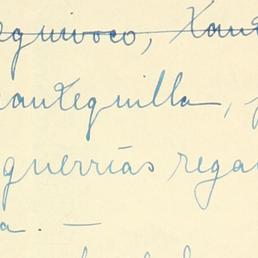 equivoco, Xant
antequilla,
guerrías rega
a. —